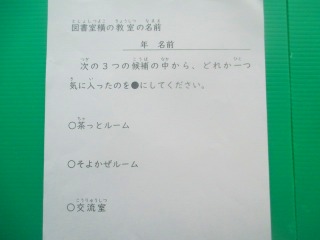 図書室横の教室の名前
年 名前
次の３つの候補の中から、どれか一つ
気に入ったのを●にしてください。
○茶っとルーム
○そよかぜルーム
○交流室